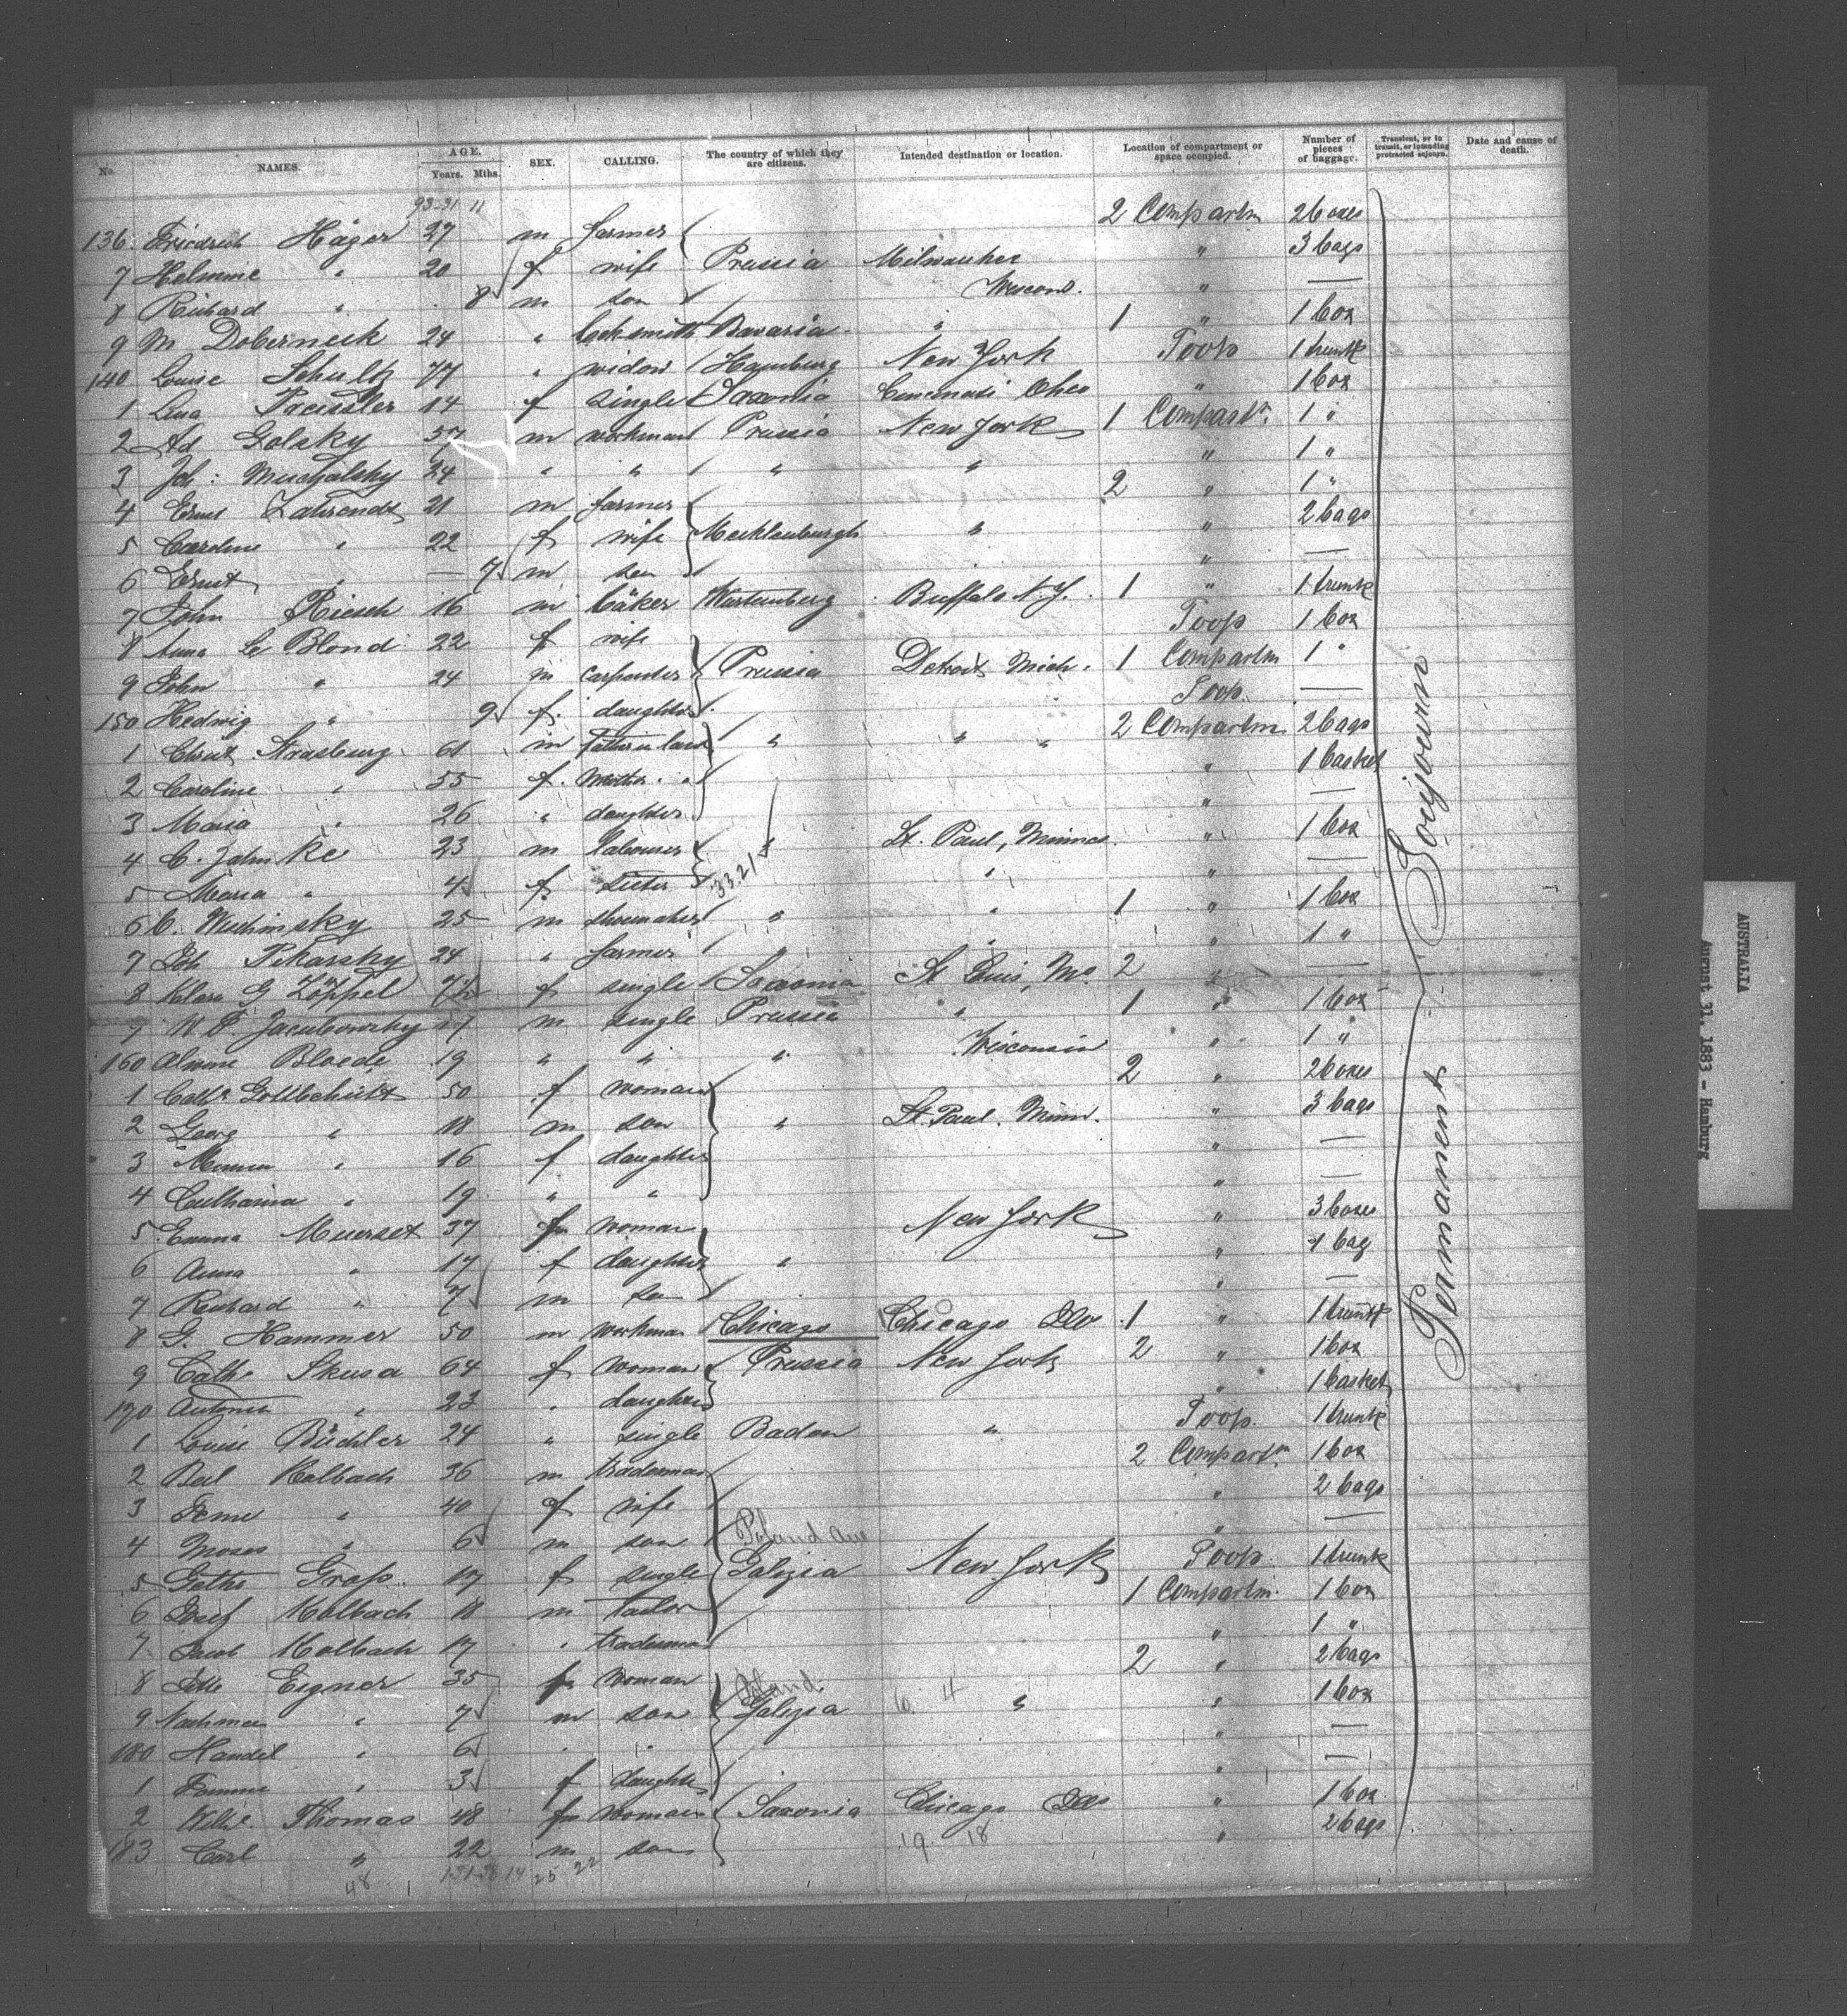 No. NAMES. AGE. Years. Mths. SEX. CALLING. The country of which they are citizens. Intended destination or location. Location of compartment or space occupied. Number of pieces of baggage. Transient, or in transit, or intending protracted sojourn. Date and cause of death.
93-31 11
136 Friedrich Häger 27 m farmer 2 Compartm 2 boxes
7 Helmine " 20 f wife Prussia Milwaukee " 3 bags
8 Richard " 8 m son Wiscons. " —
9 M Doberneck 24 " locksmith Bavaria " 1 " 1 box
140 Louise Schultz 77 " widow Hamburg New York Poop 1 trunk
1 Lina Preissler 14 f single Saxonia Cincinati Ohio " 1 box
2 Ad Golsky 57 m workman Prussia New York 1 Compartm. 1 "
3 Joh: Muchalsky 24 " " " " " 1 "
4 Ernst Zahrendt 21 m farmer 2 " 1 "
5 Caroline " 22 f wife Mecklenburgh " " 2 bags
6 Ernst " — 7 m son " —
7 John Riesch 16 m bäker Würtemberg Buffalo N.Y. 1 " 1 trunk
8 Anna Le Blond 22 f wife Poop 1 box
9 John " 24 m carpenter Prussia Detroit Mich. 1 Compartm 1 "
150 Hedwig " 9 f. daughter Poop. —
1 Christ Strasburg 61 m father in law " " " 2 Compartm. 2 bags
2 Caroline " 55 f. Mother " " " 1 basket
3 Maria " 26 " daughter " —
4 C. Jahnke 23 m labourer St. Paul, Minnes. " 1 box
5 Maria " 4 f sister 33.21 " " —
6 C. Wischinsky 25 m shoemaker " " 1 " 1 box
7 Joh Pekarsky 24 " farmer " " " 1 "
8 Klara G Zöppel f single Saxonia St Louis, Mo. 2 " —
9 Jacubowsky 17 m single Prussia " 1 " 1 box
160 Alwine Bloede 19 " " " Wisconsin " 1 "
1 Cath. Gottschildt 50 f woman 2 " 2 boxes
2 Georg " 18 m son " St. Paul. Minn. " 3 bags
3 " 16 f daughter " —
4 Catharina " 19 " " " —
5 Emma Muerset 37 f woman New York " 3 boxes
6 Anna " 17 f daughter " " 1 bag
7 Richard " 7 m son " —
8 G. Hammer 50 m workman Chicago Chicago Ills. 1 " 1 trunk
9 Cath. Skusa 64 f woman Prussia New York 2 " 1 box
170 " 23 " daughter " 1 basket
1 Louise Büchler 24 " single Baden " Poop. 1 trunk
2 Kalbach 36 m tradesman 2 Compartm. 1 box
3 " 40 f wife " 2 bags
4 Moses " 6 m son Poland Aus " —
5 Grosz 17 f single Galizia New York Poop. 1 trunk
6 Josef Kolbach 18 m tailor 1 Compartm. 1 box
7 Jacob Kolbach 17 " tradesman " 1 "
8 Eigner 35 f woman Poland 2 " 2 bags
9 Nachman " 7 m son Galizia 4 " " 1 box
180 Handel " 6 " " " —
1 " 3 f daughter " —
2 Wilh. Thomas 48 f woman Saxonia Chicago Ills " 1 box
183 Carl " 22 m son 19 18 " 2 bags
48 25 22
Permanent Soujourn
AUSTRALIA
August 31, 1883 - Hamburg